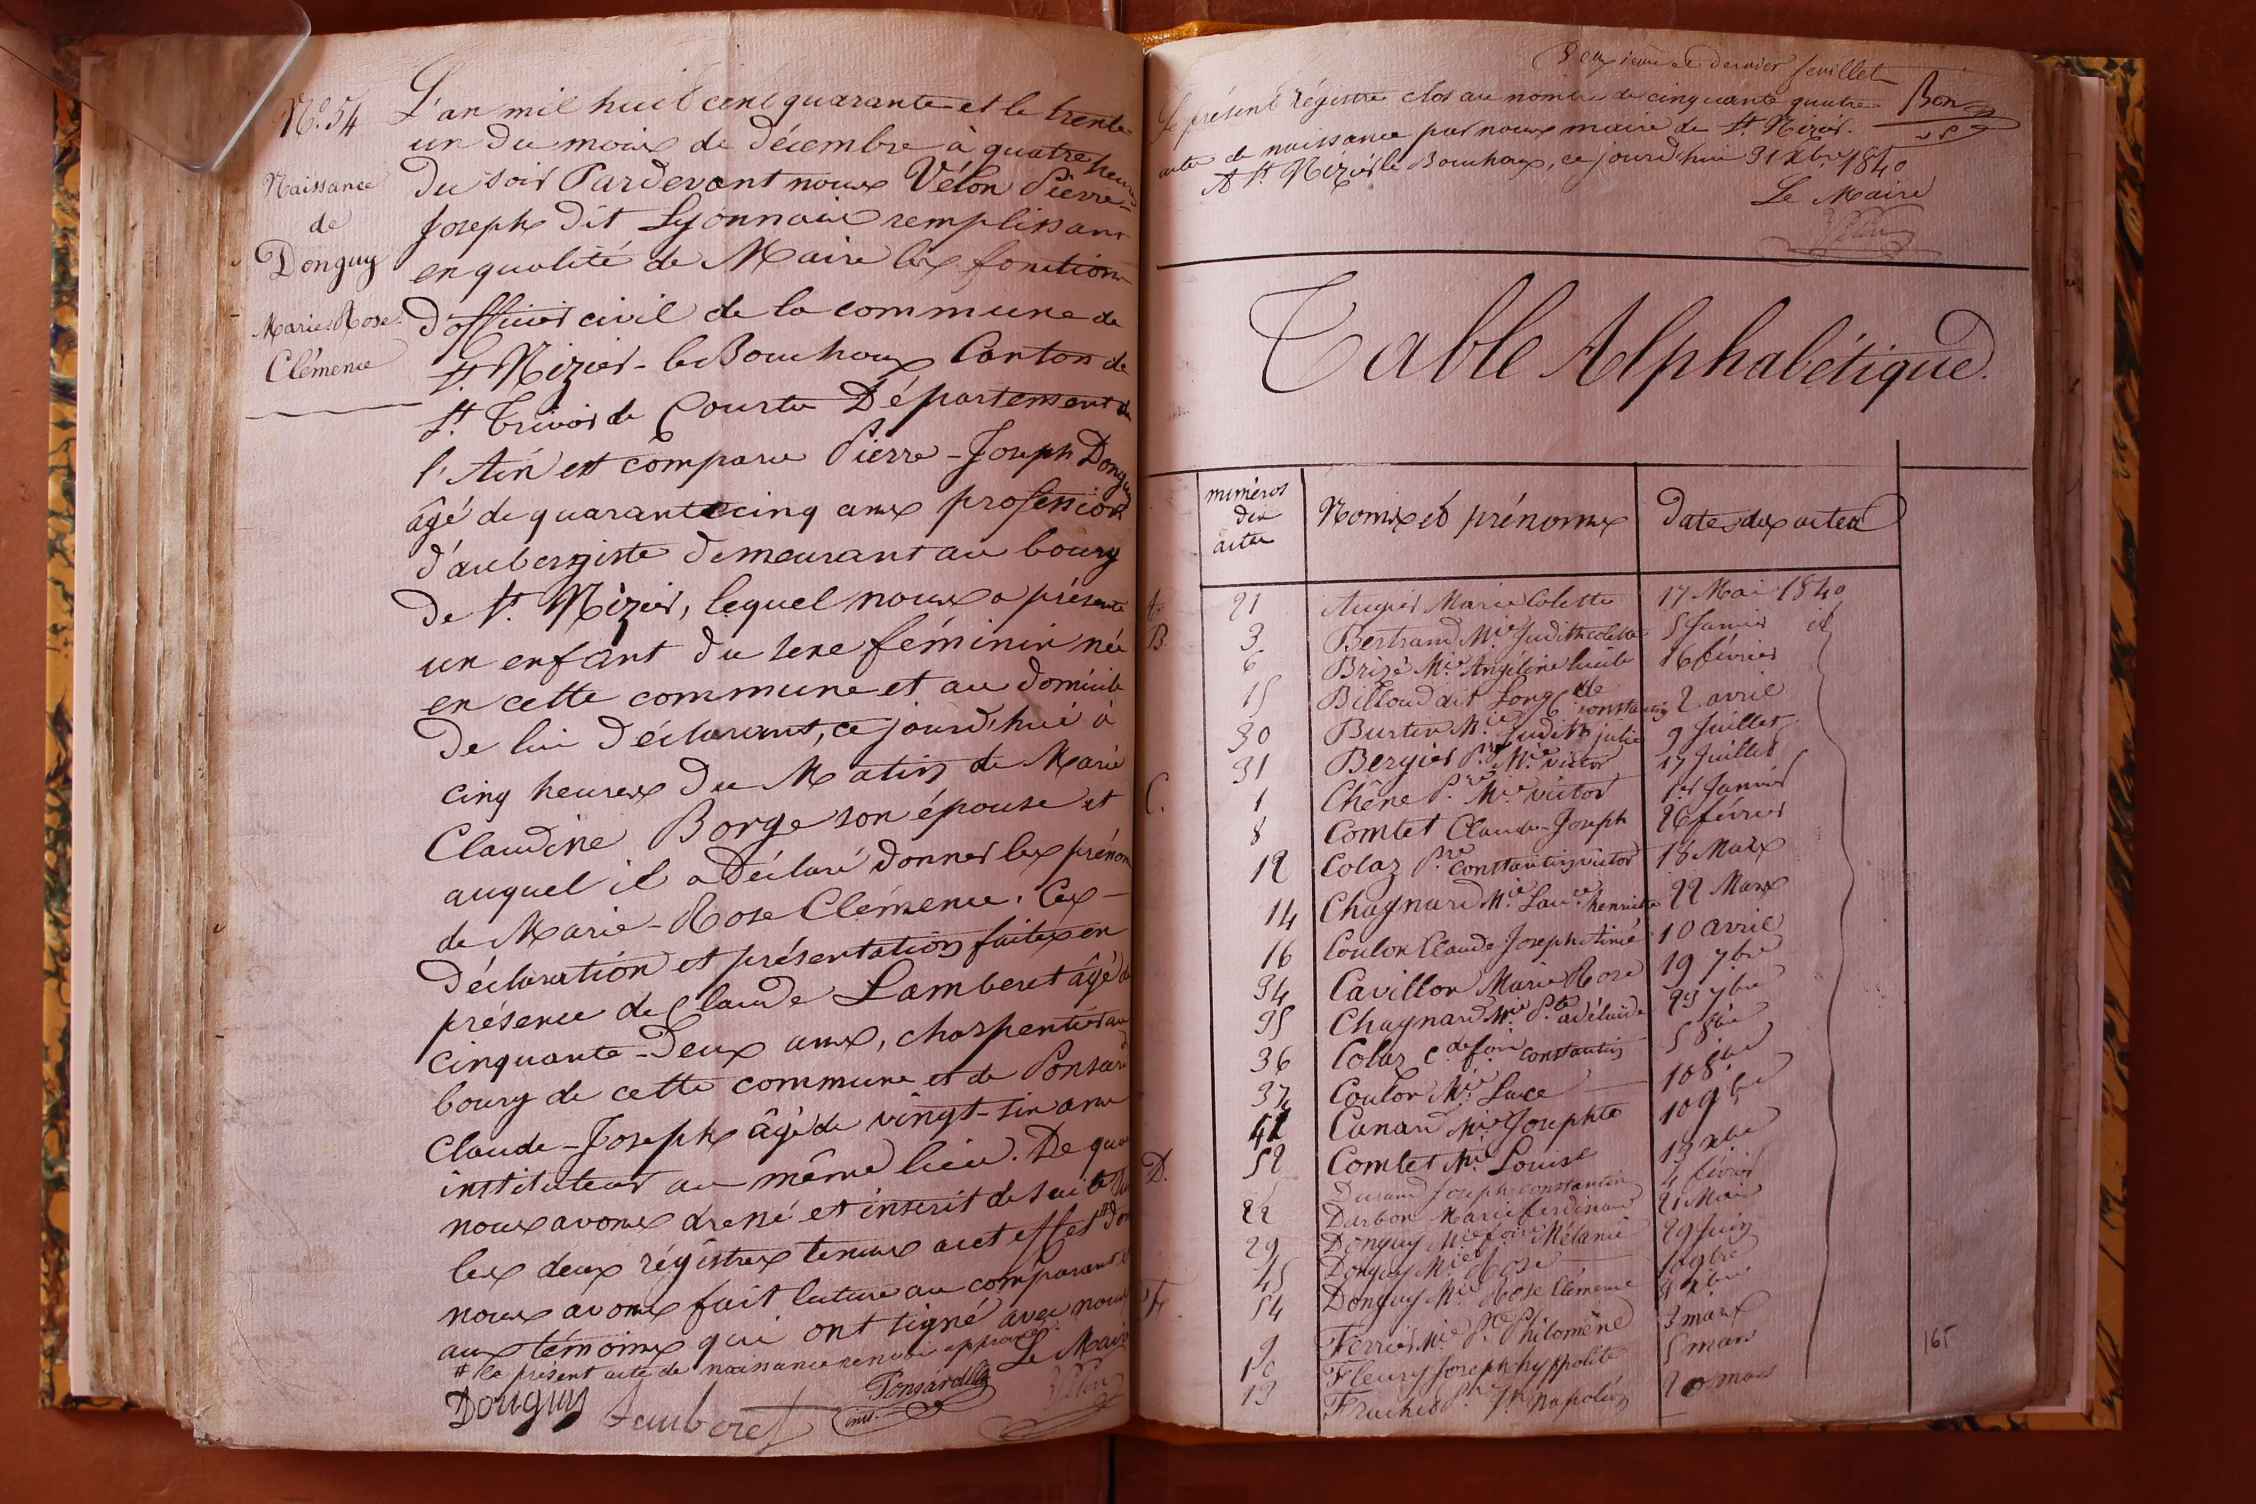 N°. 54
Naissance
de
Donguy
Marie Rose
Clémence
L'an mil huit cent quarante et le trente
un du mois de décembre à quatre heures
du soir Pardevant nous Vélon Pierre-
Joseph dit Lyonnais remplissant
en qualité de Maire les fonctions
d'officier civil de la commune de
St. Nizier-le Bouchoux Canton de
St. Trivier de Courtes Département de
l'Ain est comparu Pierre-Joseph Donguy
âgé de quarante cinq ans profession
d'aubergiste demeurant au bourg
de St. Nizier, lequel nous a présenté
un enfant du sexe féminin née
en cette commune et au domicile
de lui déclarant, ce jourd'hui à
cinq heures du Matin de Marie
Claudine Borge son épouse et
auquel il a déclaré donner les prénoms
de Marie-Rose Clémence. Ces
déclaration et présentation faites en
présence de Claude Lamberet âgé de
cinquante-deux ans, charpentier au
bourg de cette commune et de Ponsard
Claude-Joseph âgé de vingt-six ans
instituteur au même lieu. De quoi
nous avons dressé et inscrit de suite sur
les deux régistres tenus à cet effet # dont
nous avons fait lecture au comparant et
aux témoins qui ont signé avec nous
# le présent acte de naissance renvoi approuvé. Le Maire
Donguy Lamberet Ponsard inst. Vélon
Deuxième et dernier feuillet
Le présent régistre clos au nombre de cinquante quatre Bon
acte de naissance par nous maire de St. Nizier.
A St. Nizier le Bouchoux, ce jourd'hui 31 Xbre 1840
Le Maire
Vélon
Table Alphabétique.
numéros des actes Noms et prénoms Dates des actes
A. 21 Augier Marie Colette 17 Mai 1840
B. 3 Bertrand Mie. Judith colette 5 Janvier id
6 Brizé Mie. Angéline lucile 16 février
15 Billoud dit Long Cde constantin 2 avril
30 Burtin Mie. Judith julie 9 Juillet
31 Bergier Pre Mie victor 17 Juillet
C. 1 Chêne Pre. Mie victor 1er Janvier
8 Comtet Claude-Joseph 26 février
12 Colaz Pre constantin victor 18 Mars
14 Chagnard Mie. Laurce henriette 22 Mars
16 Coulon Claude Joseph 10 avril
34 Cavillon Marie Rose 19 7bre
35 Chagnard Mie Pte adélaïde 29 7bre
36 Colaz Cde fois constantin 5 8bre
37 Coulon Mie. Luce 10 8bre
42 Canard Mie Josephte 10 9bre
52 Comtet Mie. Louise 18 xbre
D. 5 Durand Joseph constantin 4 février
22 Darbon Marie ferdinand 21 Mai
29 Donguy Mie foise Mélanie 29 Juin
45 Donguy Mie Rose 9bre
54 Donguy Mie Rose Clémence 31 xbre
F. 9 Ferrier Mie Pte Philomène 3 mars
10 Fleury Joseph hyppolite 5 mars
13 Pre Jh Napoléon 20 mars
165